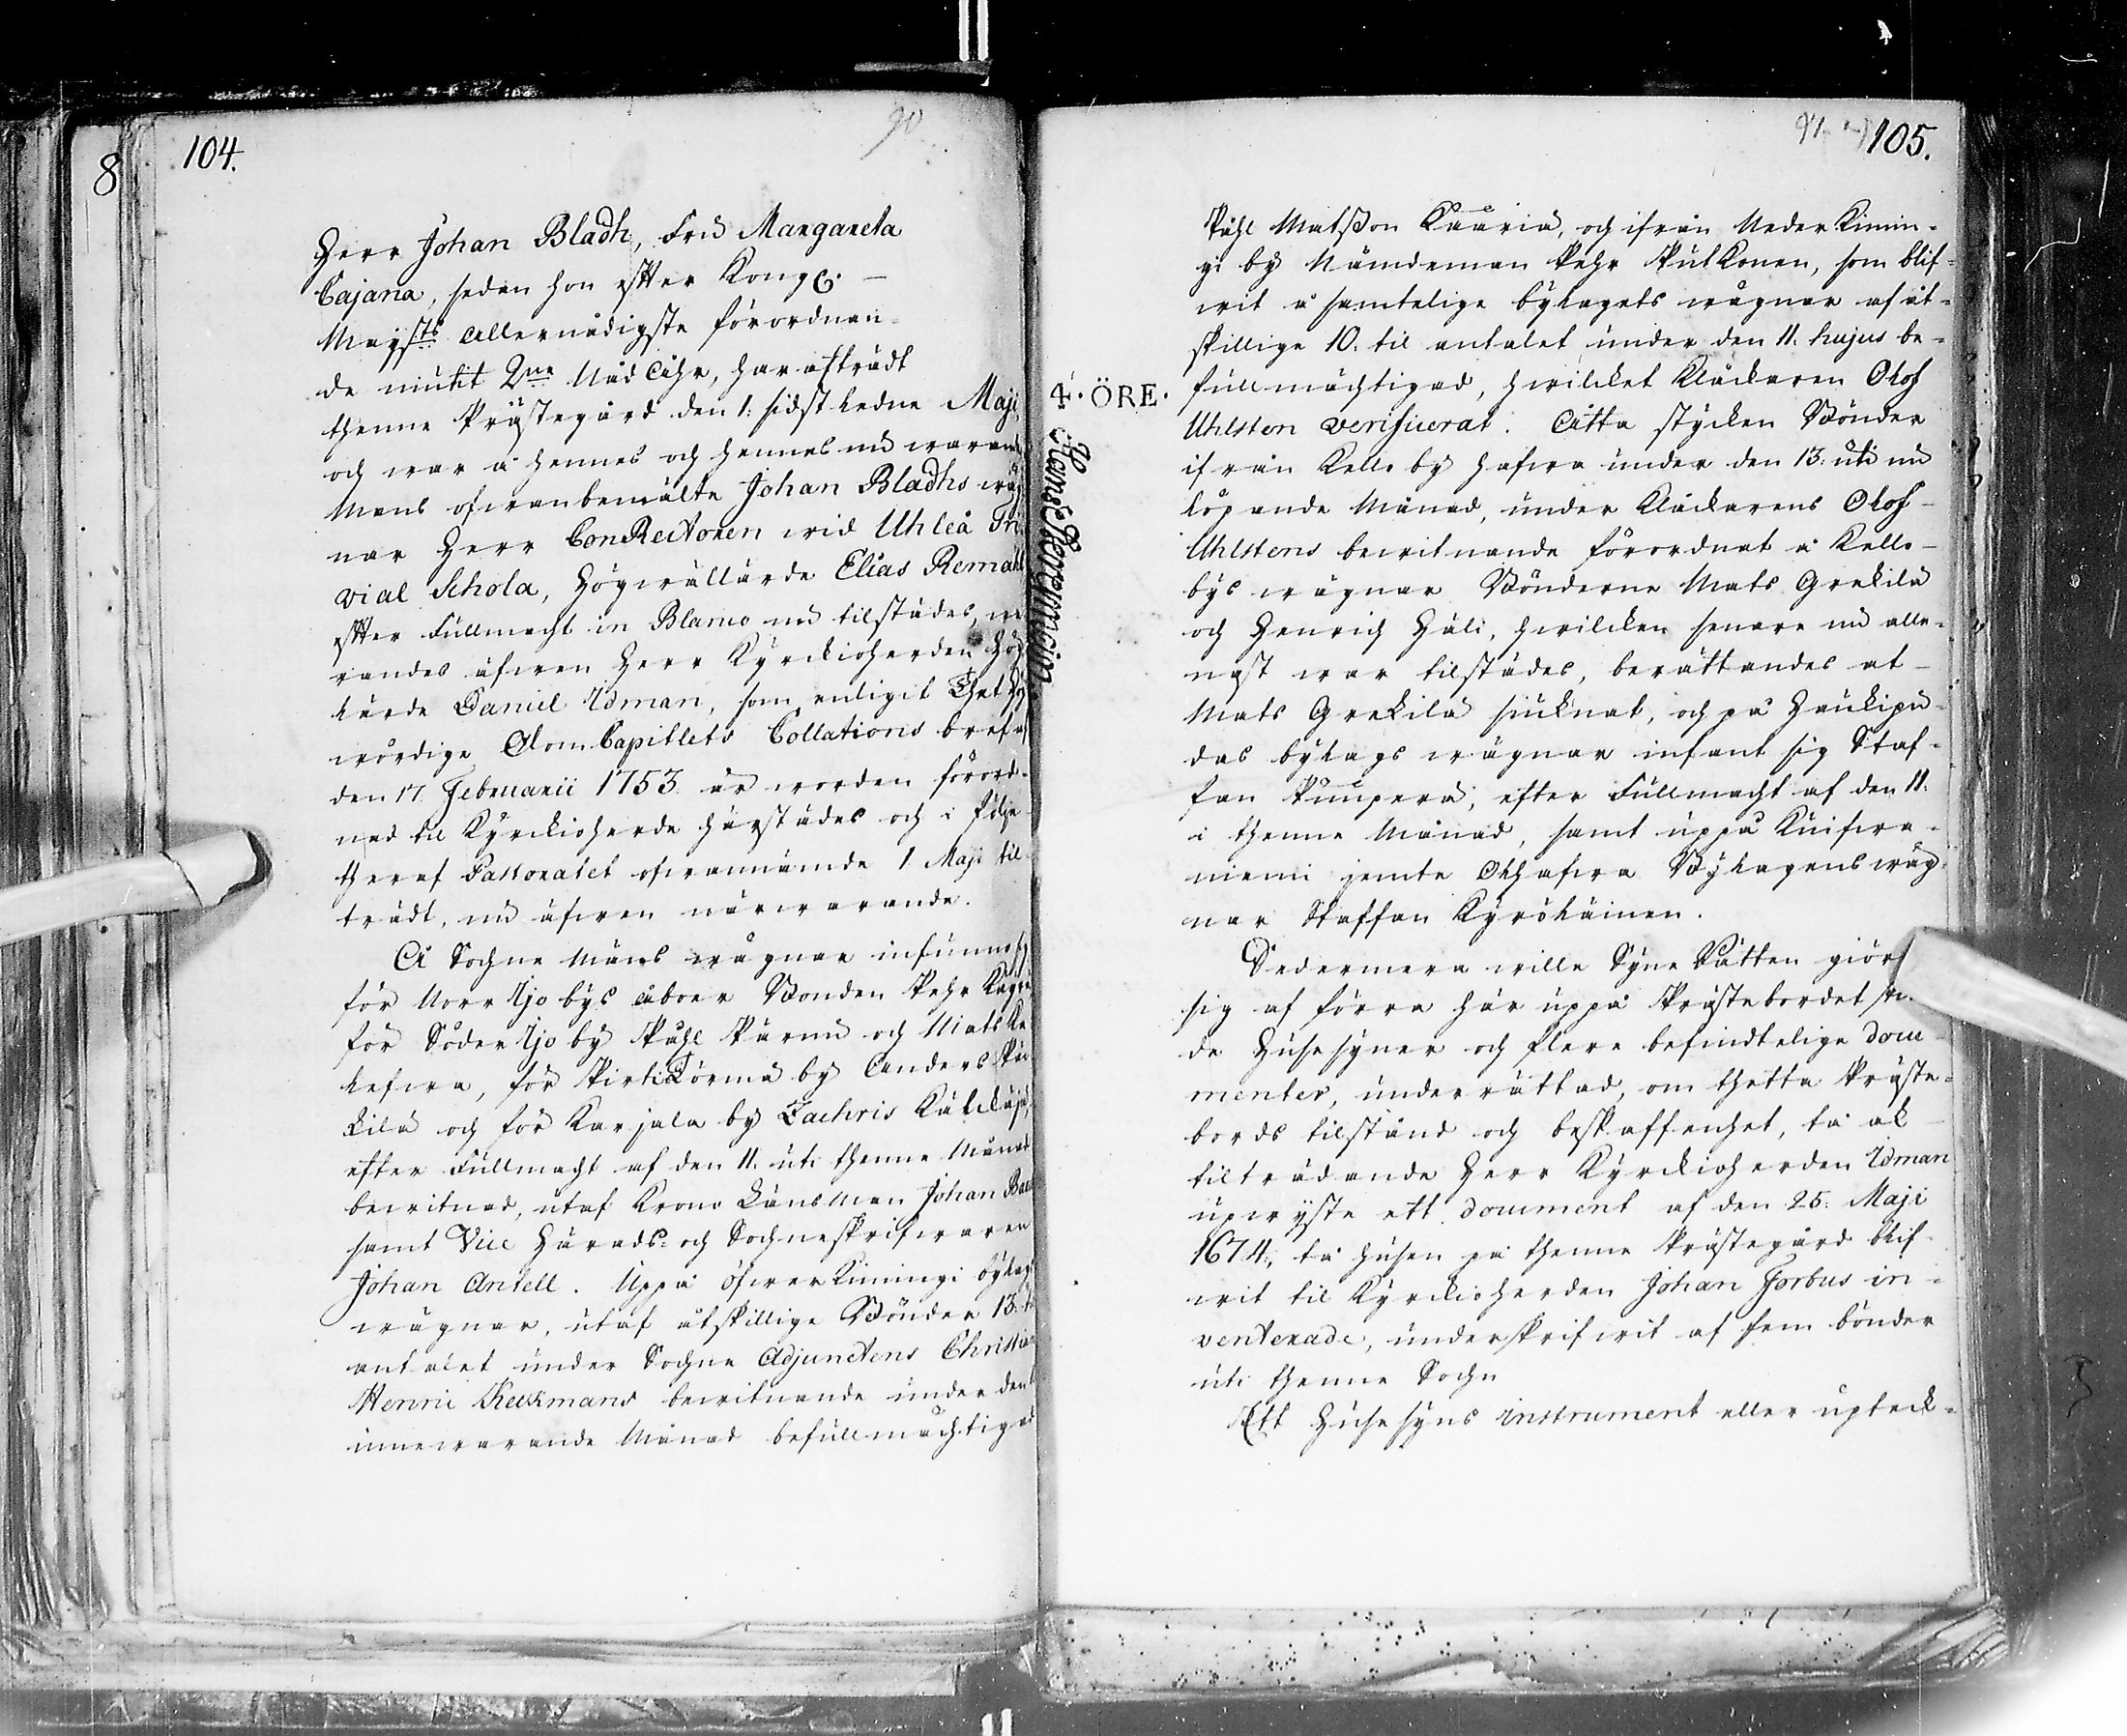 8
104.
90
Herr Johan Bladh, Fru Margareta
Cajana, sedan hon effter Kongl.
Mayst:s allernådigste förordnan-
de niutit 2ne Nåd Åhr, har afträdt
thenne Prästegård den 1. sidstledne Maji,
och war å hennes och hennes nu warande
Mans ofwanbemälte Johan Bladhs wäg-
nar Herr ConRectoren wid Uhleå Tri-
vial Schola, Högwällärde Elias Remahl
effter Fullmacht in Blanco nu tilstädes, wa-
randes äfwen Herr Kyrckioherden Hög-
lärde Daniel Idman, som enligit Thet Hög-
wördige DomCapitlets Collations bref af
den 17. Februarii 1753 är worden förord-
nad til Kyrckioherde härstädes och i följe
theraf Pastoratet ofwannämde 1 Maji til-
trädt, nu äfwen närwarande.
Å Sochne Mäns wägnar infunno sig
för Norr Ijo bys åboer Bonden Pehr
för Söder Ijo by Påhl Pärnu och Mats
lefwa, för Pirtitörmä by Anders
kilä och för Karjala by Zachris
efter Fullmacht af den 11. uti thenne Månad
bewitnad, utaf Krono Länsman Johan
samt Vice Härads- och Sochneskrifwaren
Johan Antell. Uppå ÖfwerKimingi bylags
wägnar, utaf åtskillige Bönder 13. til
antalet under Sochne Adjunctens Christian
Henric Keckmans bewitnande under den
innewarande Månad befullmächtigad
91
105.
4. ÖRE.
Påhl Matsson Kaaria, och ifrån NederKimin-
gi by Nämdeman Pehr Pulkonen, som blif-
wit å samtelige bylagets wägnar af åt-
skillige 10. til antalet under den 11. hujus be-
fullmächtigad, hwilcket Klåckaren Olof
Uhlsten verificerat. Åtta stycken Bönder
ifrån Kello by hafwa under den 13. uti nu
löpande Månad, under Klåckarens Olof
Uhlstens bewitnande förordnat å Kello
bys wägnar Bönderne Mats Grekilä
och Henrich Häli, hwilcken senare nu alle-
nast war tilstädes, berättandes at
Mats Grekilä siuknat, och på Haukipu-
das bylags wägnar infant sig Staf-
fan Puuperä, efter Fullmacht af den 11.
i thenne Månad, samt uppå Kuifwa-
niemi jemte Olhafwa Bylagens wäg-
nar Staffan Kyröläinen.
Sedermera wille Syne Rätten giöra
sig af förra här uppå Prästebordet
de Husesyner och flere befindtelige docu-
menter, underrättad, om thetta Präste-
bords tilstånd och beskaffenhet, tå at
tilträdande Herr Kyrckioherden Idman
upwiste ett document af den 25. Maji
1674., tå husen på thenne Prästegård blif-
wit til Kyrckioherden Johan Forbus in-
venterade, underskrifwit af fem bönder
uti thenne Sochn
Ett Husesyns instrument eller upteck-